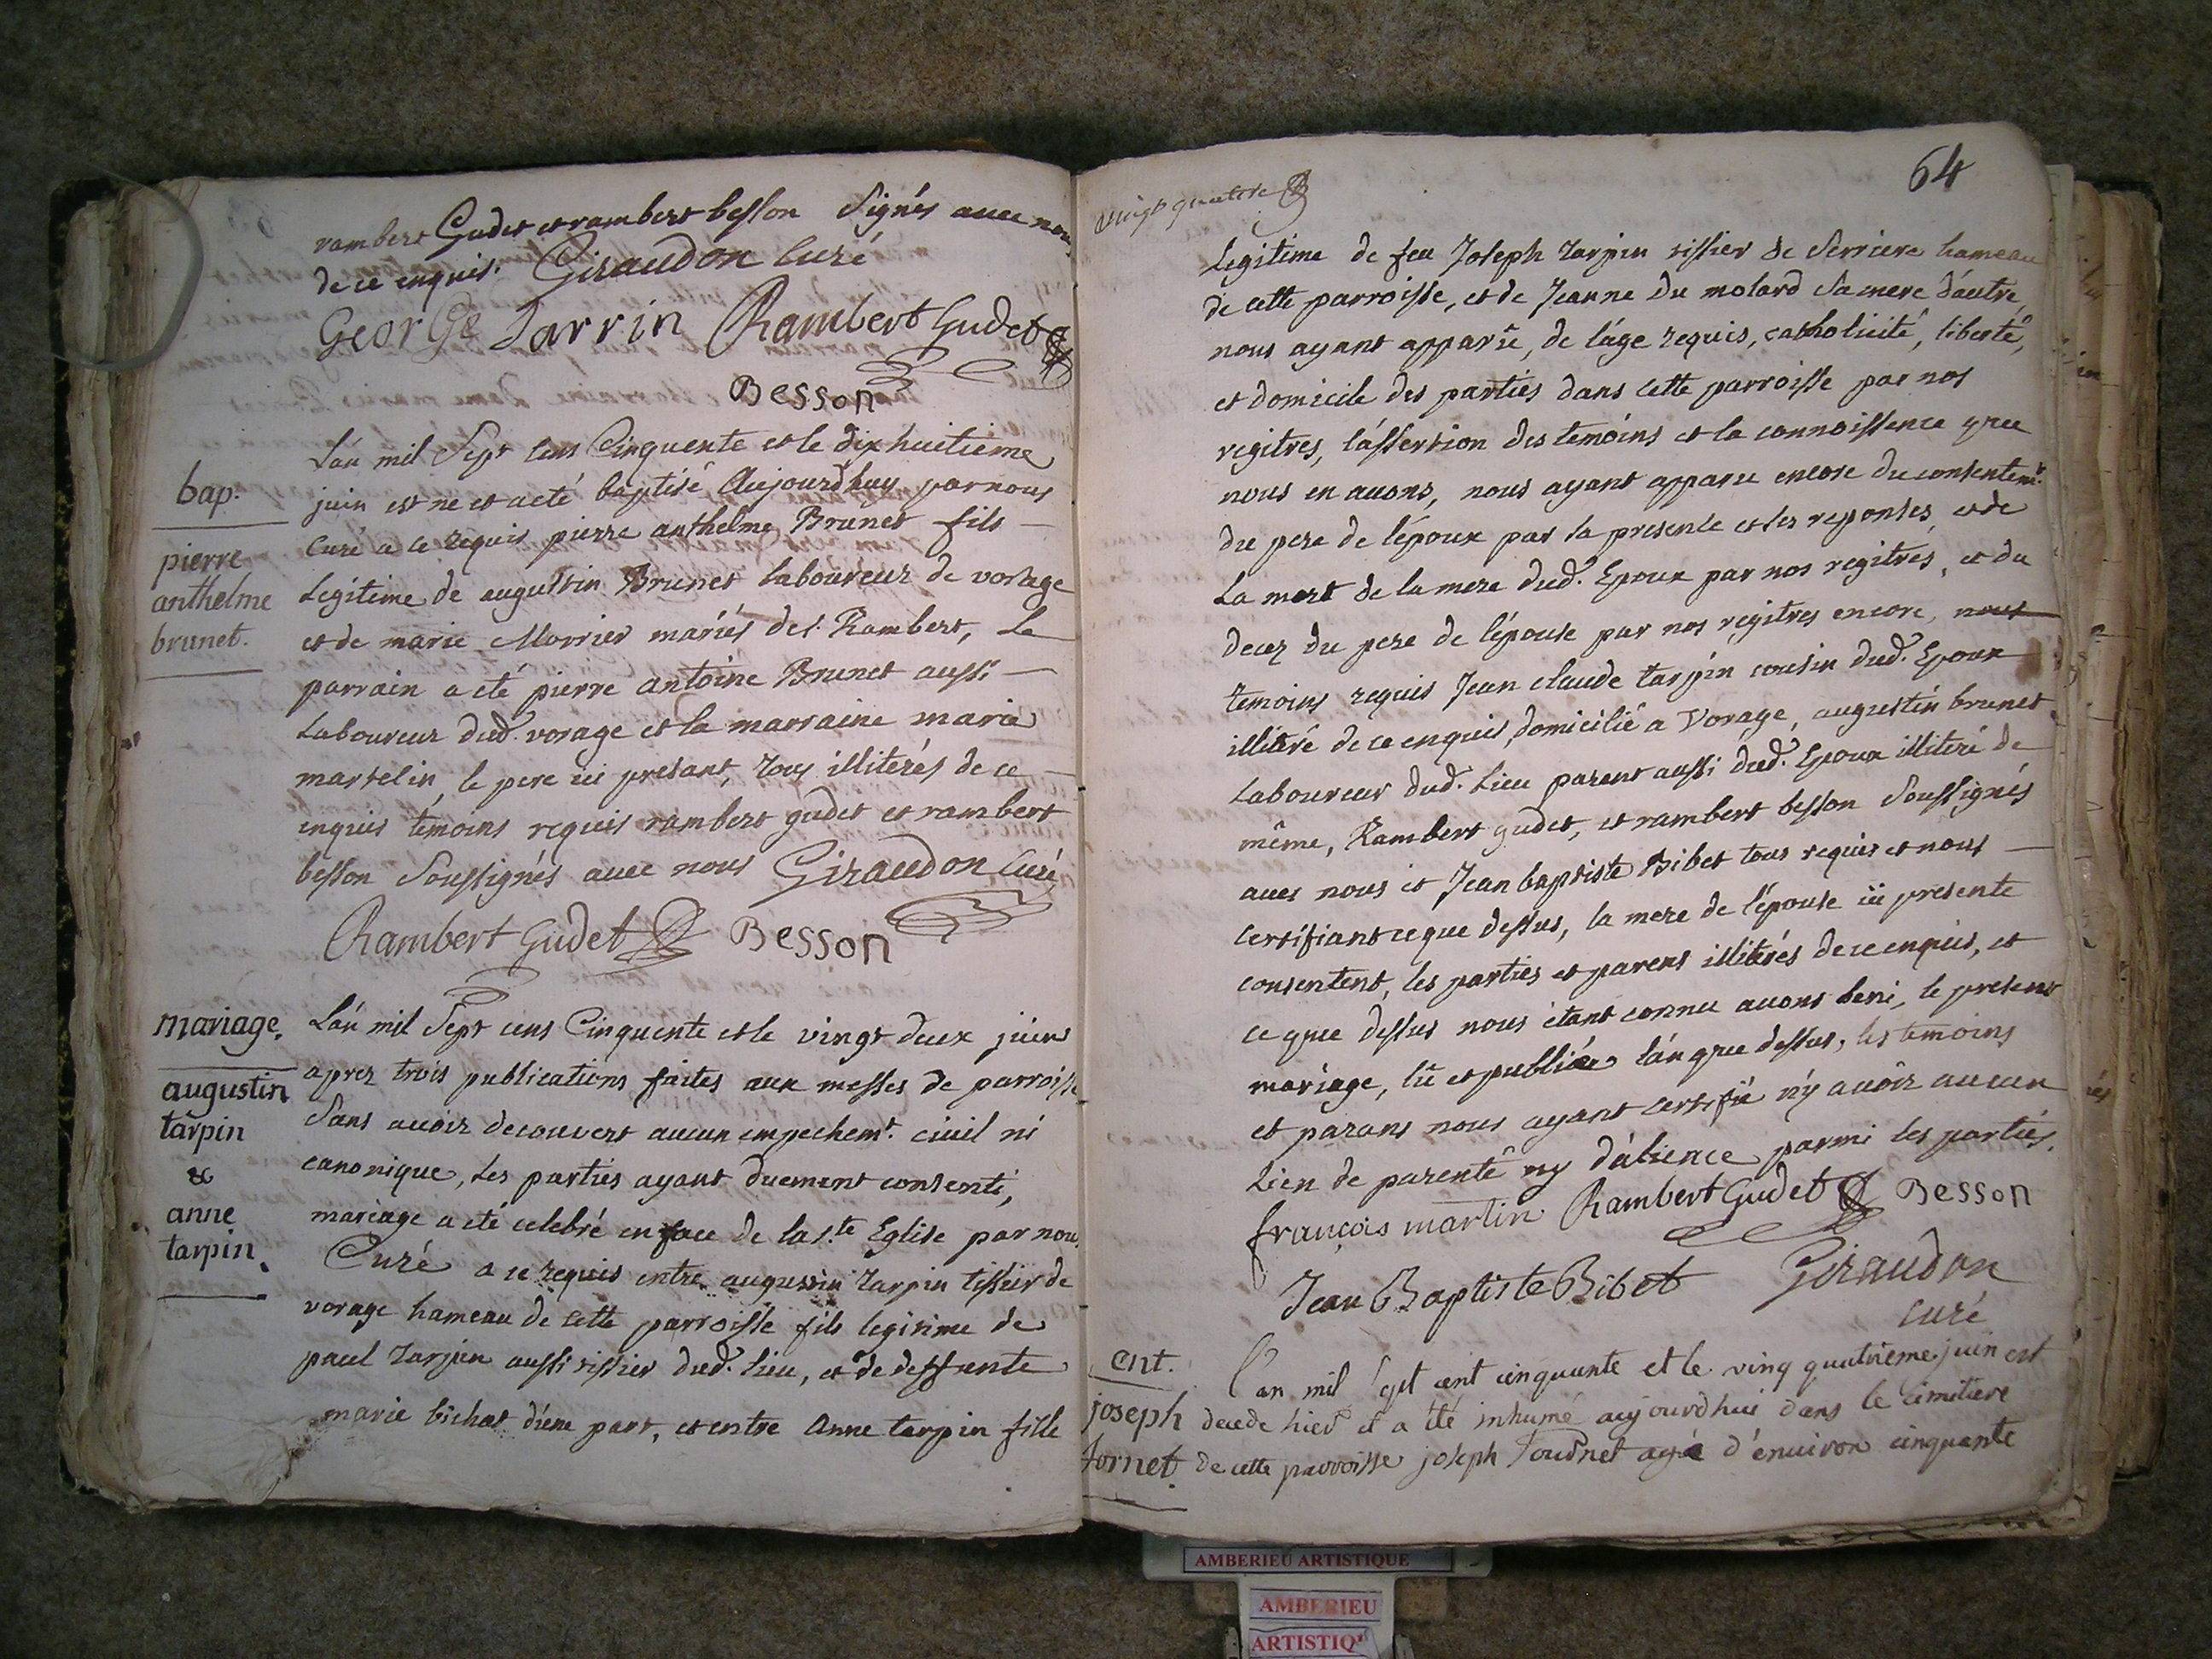 rambert Gudet et rambert besson Signés avec nou
de ce enquis. Giraudon Curé
GeorGe Jarrin Rambert Gudet
Besson
bap.
pierre
anthelme
brunet.
L'an mil Sept cens Cinquente et le dix huitieme
juin est ne et a eté baptisé Aujourdhuy par nous
Curé a ce requis pierre anthelme Brunet fils
Legitime de augustin Brunet laboureur de vorage
et de marie Morrier mariés de s.t Rambert, Le
parrain a eté pierre antoine Brunet aussi
Laboureur dud. vorage et la marraine marie
martelin, le pere ici present, tous illiterés de ce
enquis témoins requis rambert gudet et rambert
besson Soussignés avec nous Giraudon Curé
Rambert Gudet Besson
mariage.
augustin
tarpin
&
anne
tarpin.
L'an mil Sept cens Cinquente et le vingt deux juin
aprez trois publications faites aux messes de parroisse
Sans avoir decouvert aucun empechem.t civil ni
canonique, Les parties ayant duement consenti,
mariage a eté celebré en face de la s.te Eglise par nous
Curé a ce requis entre augustin tarpin tissier de
vorage hameau de cette parroisse fils legitime de
paul tarpin aussi tissier dud. lieu, et de deffunte
marie bichat d'une part, et entre Anne tarpin fille
64
vingt quatre
Legitime de feu Joseph tarpin tissier de Serriere hameau
de cette parroisse, et de Jeanne Du molard Sa mere d'autre,
nous ayant apparû, de l'áge requis, catholicité, liberté,
et domicile des parties dans cette parroisse par nos
regitres, l'assertion des temoins et la connoissence que
nous en avons, nous ayant apparu encore du consentem.t
du pere de l'époux par sa presence et ses reponses, et de
La mort de la mere dud. Epoux par nos regitres, et du
decez du pere de l'épouse par nos regitres encore, nous
temoins requis Jean claude tarpin cousin dud. Epoux
illiteré de ce enquis, domicilié a Vorage, augustin brunet
Laboureur dud. Lieu parent aussi dud. Epoux illiteré de
même, Rambert gudet, et rambert besson Soussignés
avec nous et Jean baptiste Bibet tous requis et nous
certifiant ce que dessus, la mere de l'épouse ici presente
consentent, les parties et parens illiterés de ce enquis, et
ce que dessus nous étant connu avons beni, le present
mariage, lû et publiée l'an que dessus, les temoins
et parans nous ayant certifié n'y avoir aucun
Lien de parenté ny d'alience parmi les parties.
françois martin Rambert Gudet Besson
Jean Baptiste Bibet Giraudon
curé
ent.
joseph
fornet.
L'an mil sept cent cinquante et le ving quatrieme juin est
decede hier et a été inhumé aujourdhui dans le cimitiere
de cette parroisse joseph Fournet agée d'environ cinquante
AMBERIEU ARTISTIQUE
AMBERIEU
ARTISTIQ